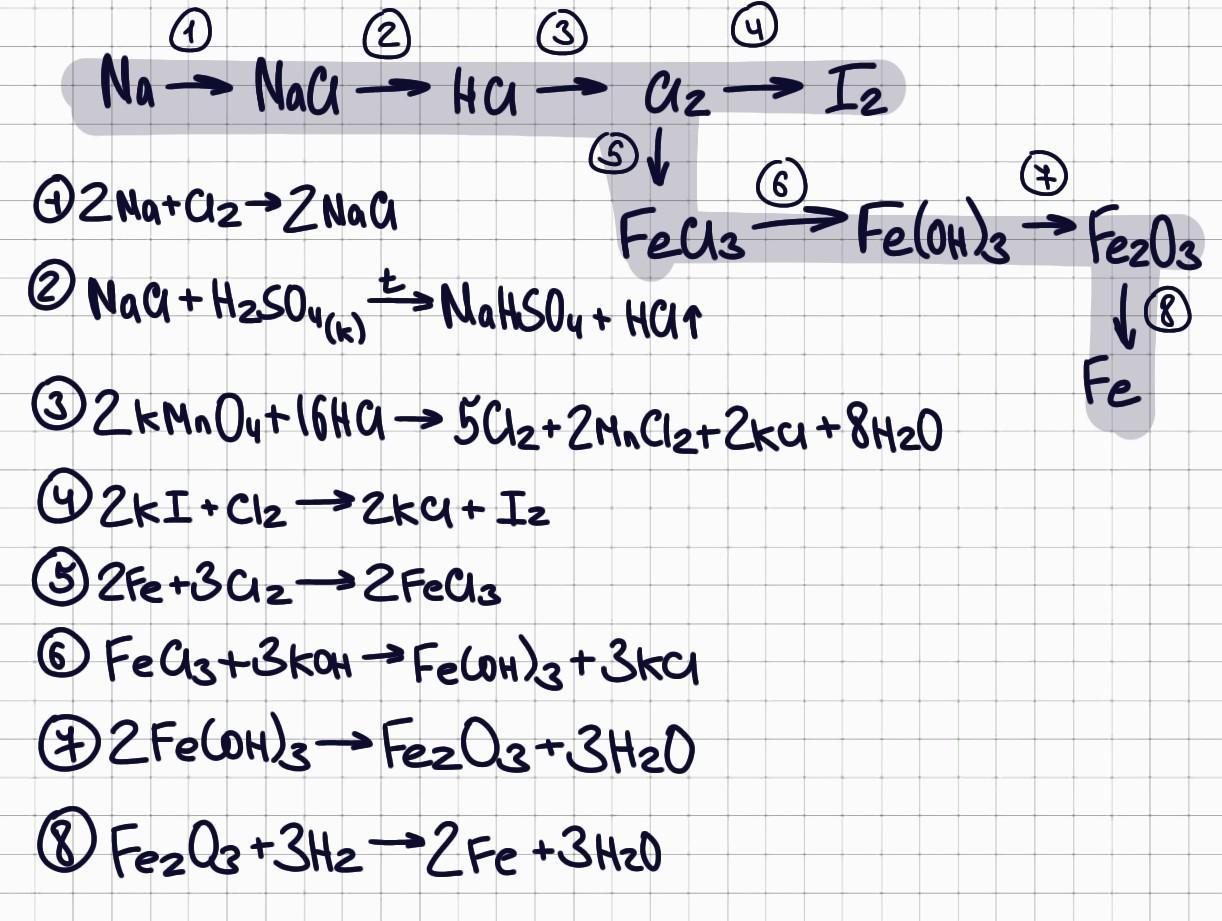 ① ② ③ ④
Na → NaCl → HCl → Cl₂ → I₂
⑤ ↓ ⑥ ⑦
FeCl₃ → Fe(OH)₃ → Fe₂O₃
↓ ⑧
Fe
① 2Na+Cl₂→2NaCl
② NaCl+H₂SO₄(k) t→ NaHSO₄+HCl↑
③ 2KMnO₄+16HCl→5Cl₂+2MnCl₂+2KCl+8H₂O
④ 2KI+Cl₂→2KCl+I₂
⑤ 2Fe+3Cl₂→2FeCl₃
⑥ FeCl₃+3KOH→Fe(OH)₃+3KCl
⑦ 2Fe(OH)₃→Fe₂O₃+3H₂O
⑧ Fe₂O₃+3H₂→2Fe+3H₂O